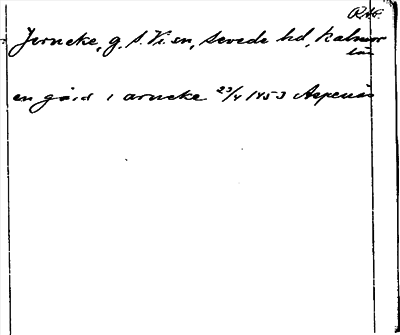 R.A.P.
Jerneke, g, S. Vi sn, Sevede hd, Kalmar
län
en gård i arneke 23/4 1453 Aspenäs